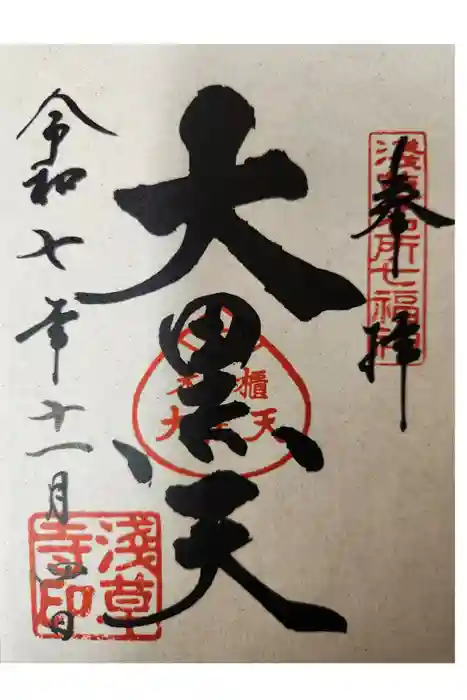 奉拝
浅草名所七福神
大黒天
米櫃
大黒天
令和七年十一月四日
浅草
寺印